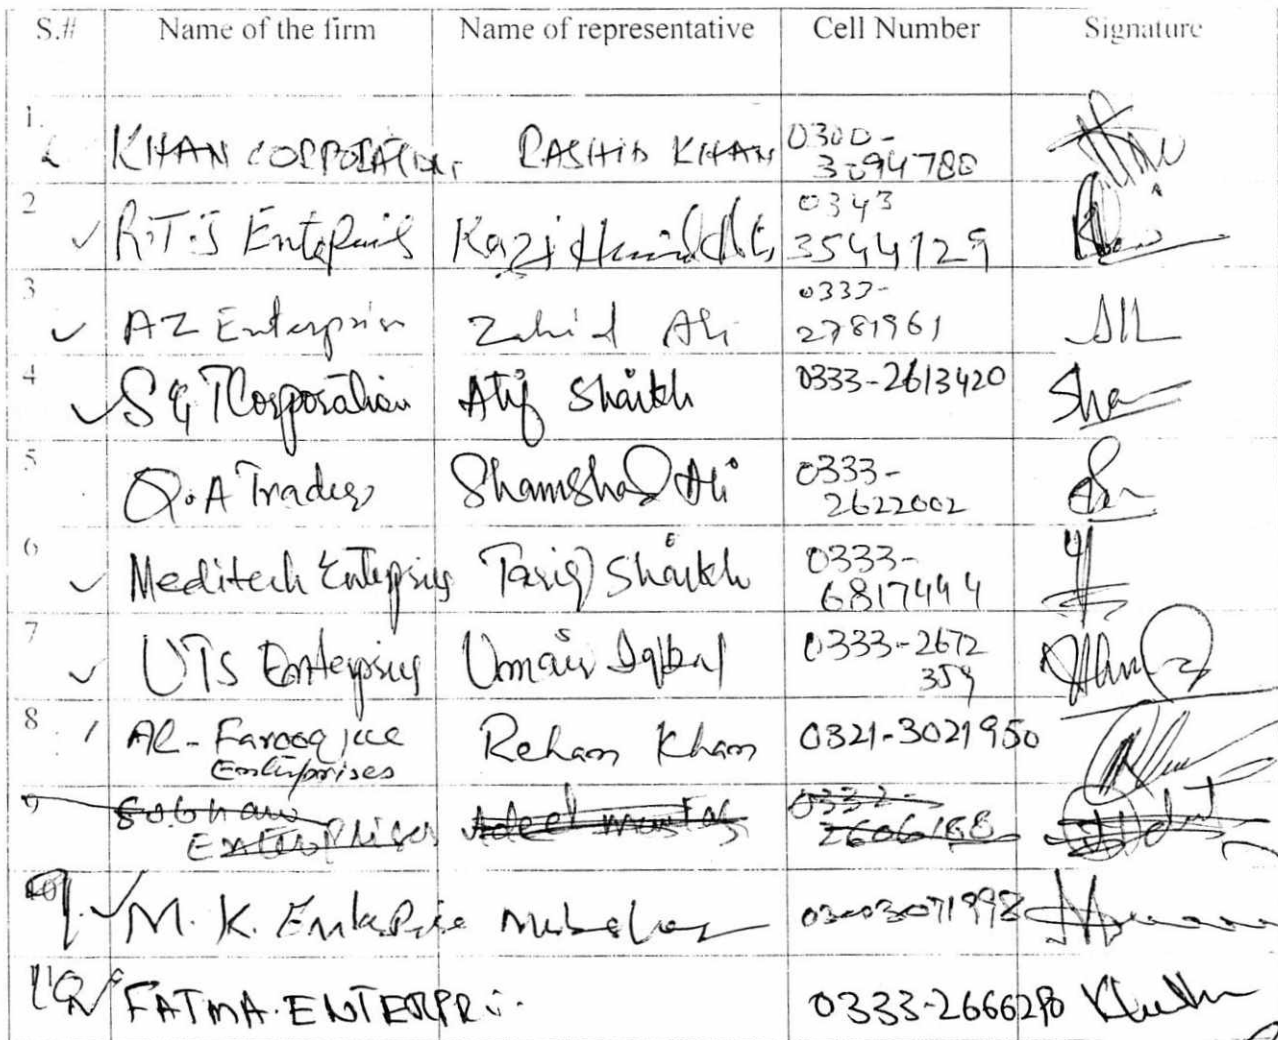 S.# Name of the firm Name of representative Cell Number Signature
1. KHAN CORPORATION RASHID KHAN 0300-
3094780
2 R.T.S Enterprises Kazi 0343
3544129
3 AZ Enterprise Zahid Ali 0333-
2781961
4 S & T Corporation Atif Shaikh 0333-2613420
5 Q.A Traders Shamshad Ali 0333-
2622002
6 Meditech Enterprises Tariq Shaikh 0333-
6817444
7 UTS Enterprises Umair Iqbal 0333-2672
359
8 Al-Farooq jee Rehan Khan 0321-3021950
Enterprises
9 Sobhan Adeel 0332-
Enterprises 2606188
9. M.K. Enterprise 0300-3071998
10 FATMA ENTERPRI. 0333-2666290